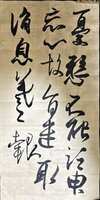 憂懸不能須臾
忘心故旨遣取
消息羲之
報